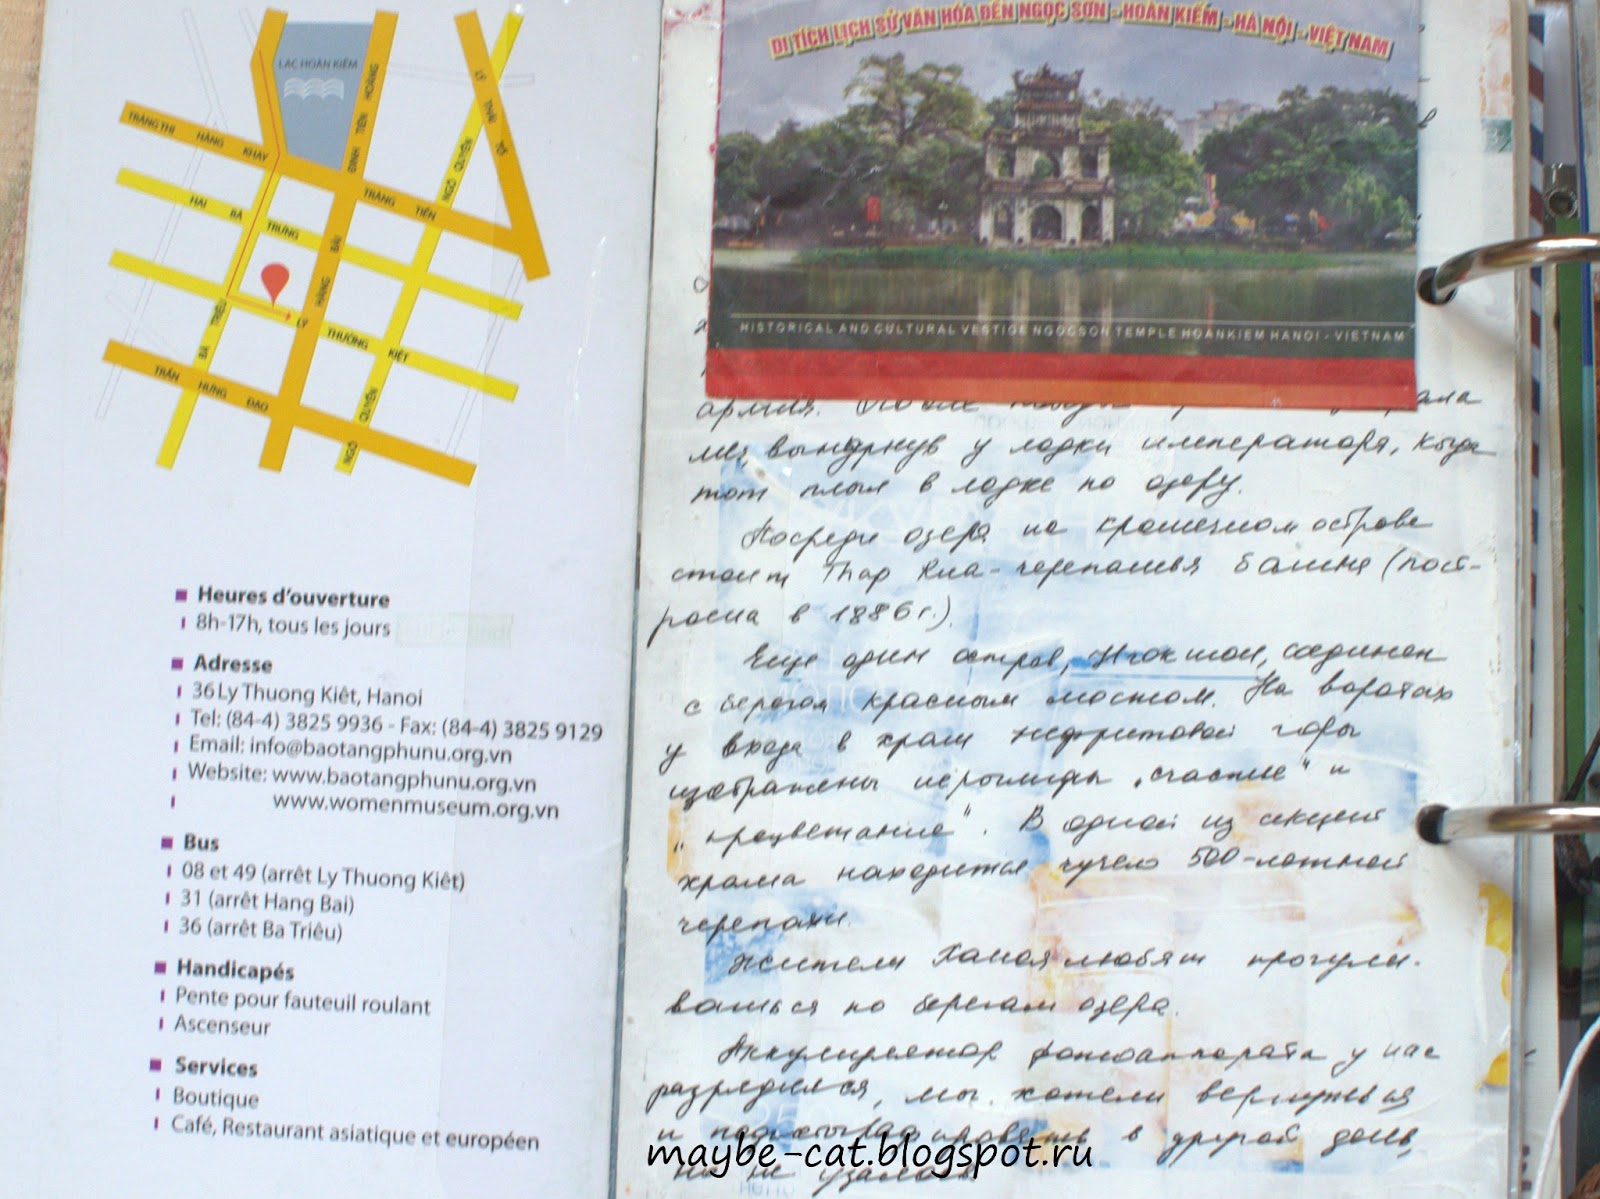 LAC HOÀN KIẾM
TRÀNG THI
HÀNG KHAY
ĐINH TIÊN HOÀNG
LÝ THÁI TỔ
NGÔ QUYỀN
TRÀNG TIỀN
HAI BÀ TRƯNG
HÀNG BÀI
BÀ TRIỆU
LÝ THƯỜNG KIỆT
TRẦN HƯNG ĐẠO
NGÔ QUYỀN
Heures d'ouverture
8h-17h, tous les jours
Adresse
36 Ly Thuong Kiêt, Hanoi
Tel: (84-4) 3825 9936 - Fax: (84-4) 3825 9129
Email: info@baotangphunu.org.vn
Website: www.baotangphunu.org.vn
www.womenmuseum.org.vn
Bus
08 et 49 (arrêt Ly Thuong Kiêt)
31 (arrêt Hang Bai)
36 (arrêt Ba Triêu)
Handicapés
Pente pour fauteuil roulant
Ascenseur
Services
Boutique
Café, Restaurant asiatique et européen
DI TÍCH LỊCH SỬ VĂN HÓA ĐỀN NGỌC SƠN - HOÀN KIẾM - HÀ NỘI - VIỆT NAM
HISTORICAL AND CULTURAL VESTIGE NGOCSON TEMPLE HOANKIEM HANOI - VIETNAM
армия. После
меч, вынырнув у лодки императора, когда
тот плыл в лодке по озеру.
Посреди озера на крошечном острове
стоит Тхар Киа - черепашья башня (пост-
роена в 1886 г.).
Еще один остров, Нгокшон, соединен
с берегом красным мостом. На воротах
у входа в храм Нефритовой горы
изображены иероглифы „счастье" и
„процветание". В одной из секций
храма находится чучело 500-летней
черепахи.
Жители Ханоя любят прогули-
ваться по берегам озера.
Аккумулятор фотоаппарата у нас
разрядился, мы хотели вернуться
и в другой день,
но не
maybe-cat.blogspot.ru